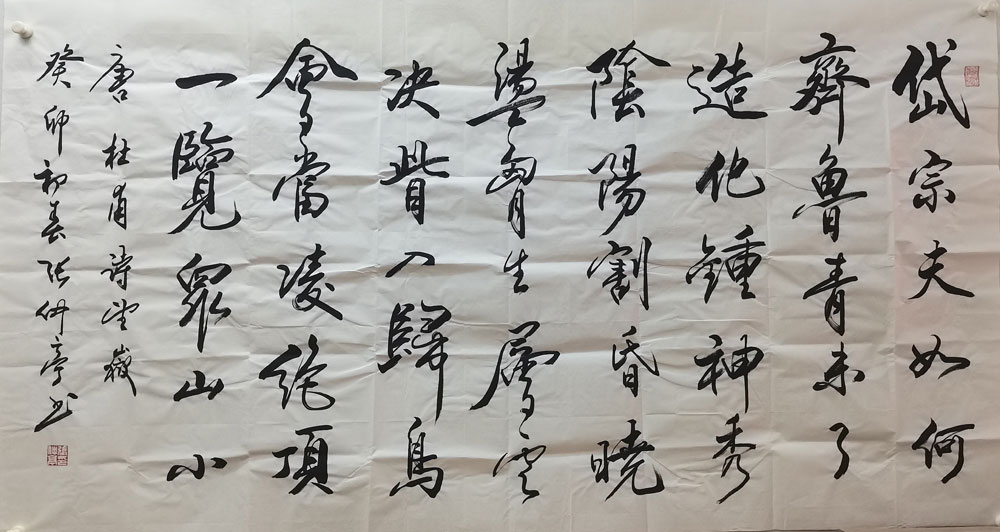 岱宗夫如何
齊魯青未了
造化鍾神秀
陰陽割昏曉
盪胷生層雲
決眥入歸鳥
會當凌絶頂
一覽眾山小
唐杜甫詩望嶽
癸卯初春張仲亭书